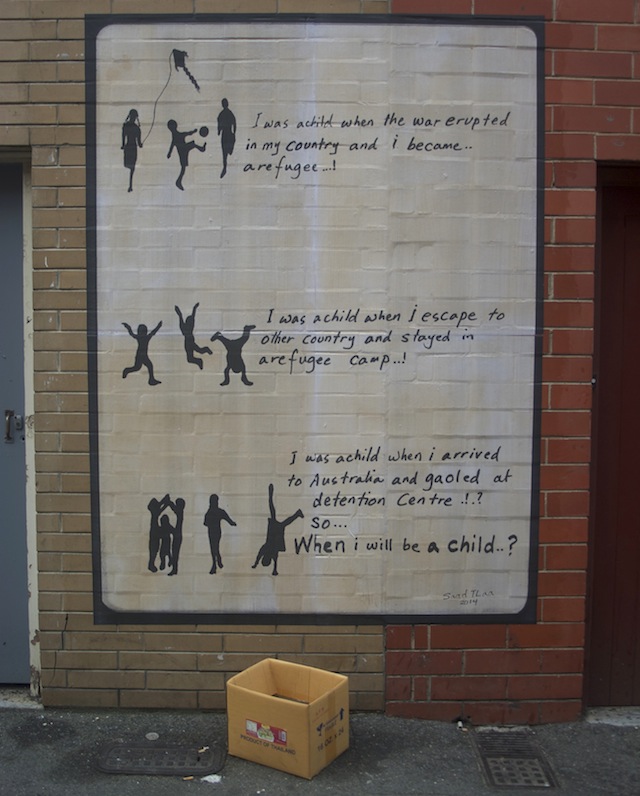 I was achild when the war erupted
in my country and i became..
arefugee...!
I was achild when i escape to
other country and stayed in
arefugee camp..!
I was achild when i arrived
to Australia and gaoled at
detention Centre .!.?
So...
When i will be a child..?
2014
PRODUCT OF THAILAND